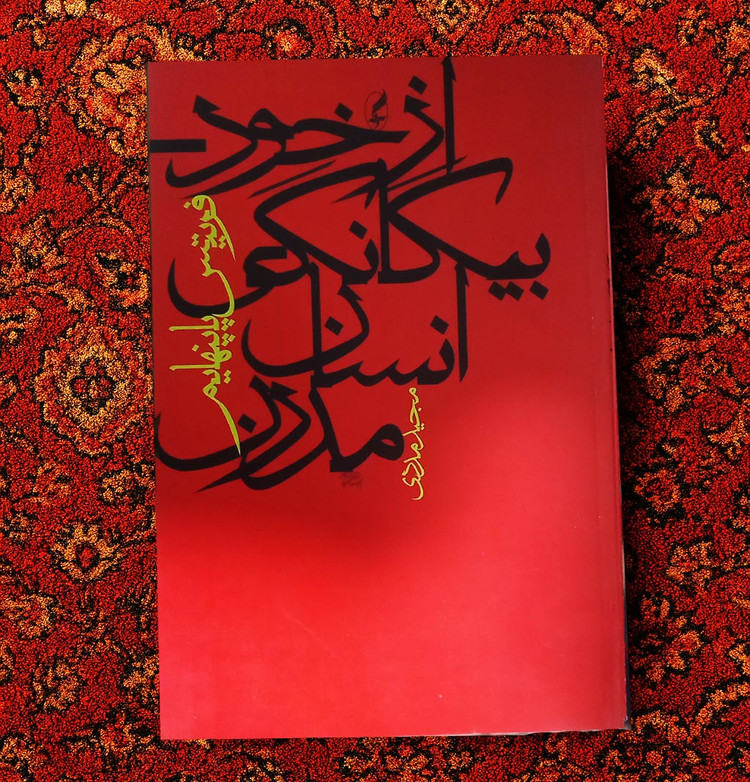 از خود_
بیگانگی
انسان
مدرن
فریتس پاپنهایم
مجید مددی